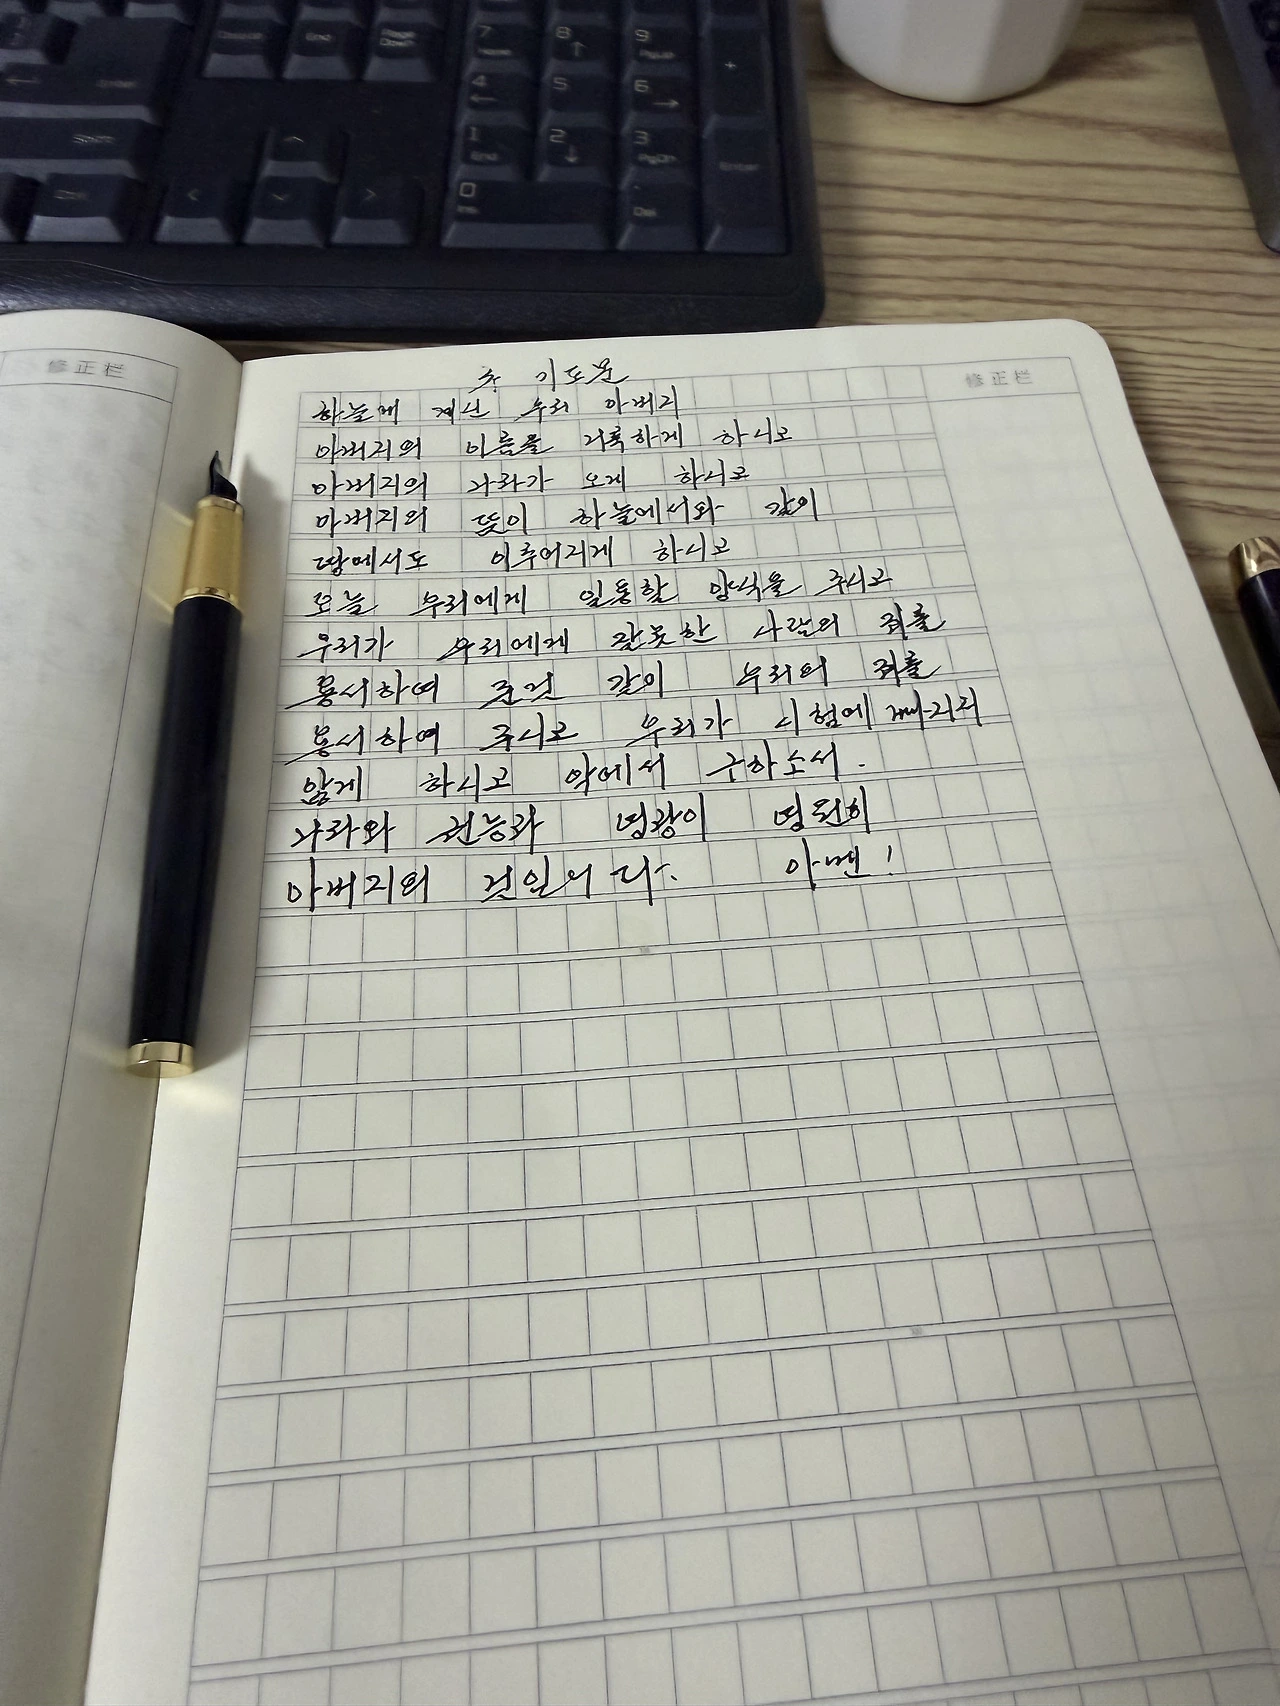 Delete End Page Down 7 Home 8 ↑ 9 PgUp +
← Enter 4 ← 5 6 →
Shift ^ 1 End 2 ↓ 3 PgDn Enter
Ctrl < v > 0 Ins . Del
修正栏
修正栏
주 기도문
하늘에 계신 우리 아버지
아버지의 이름을 거룩하게 하시고
아버지의 나라가 오게 하시고
아버지의 뜻이 하늘에서와 같이
땅에서도 이루어지게 하시고
오늘 우리에게 일용할 양식을 주시고
우리가 우리에게 잘못한 사람의 죄를
용서하여 준것 같이 우리의 죄를
용서하여 주시고 우리가 시험에 빠지지
않게 하시고 악에서 구하소서.
나라와 권능과 영광이 영원히
아버지의 것입니다. 아멘!